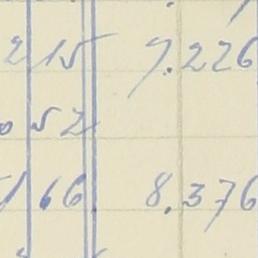 215 7.226
52
66 8.376